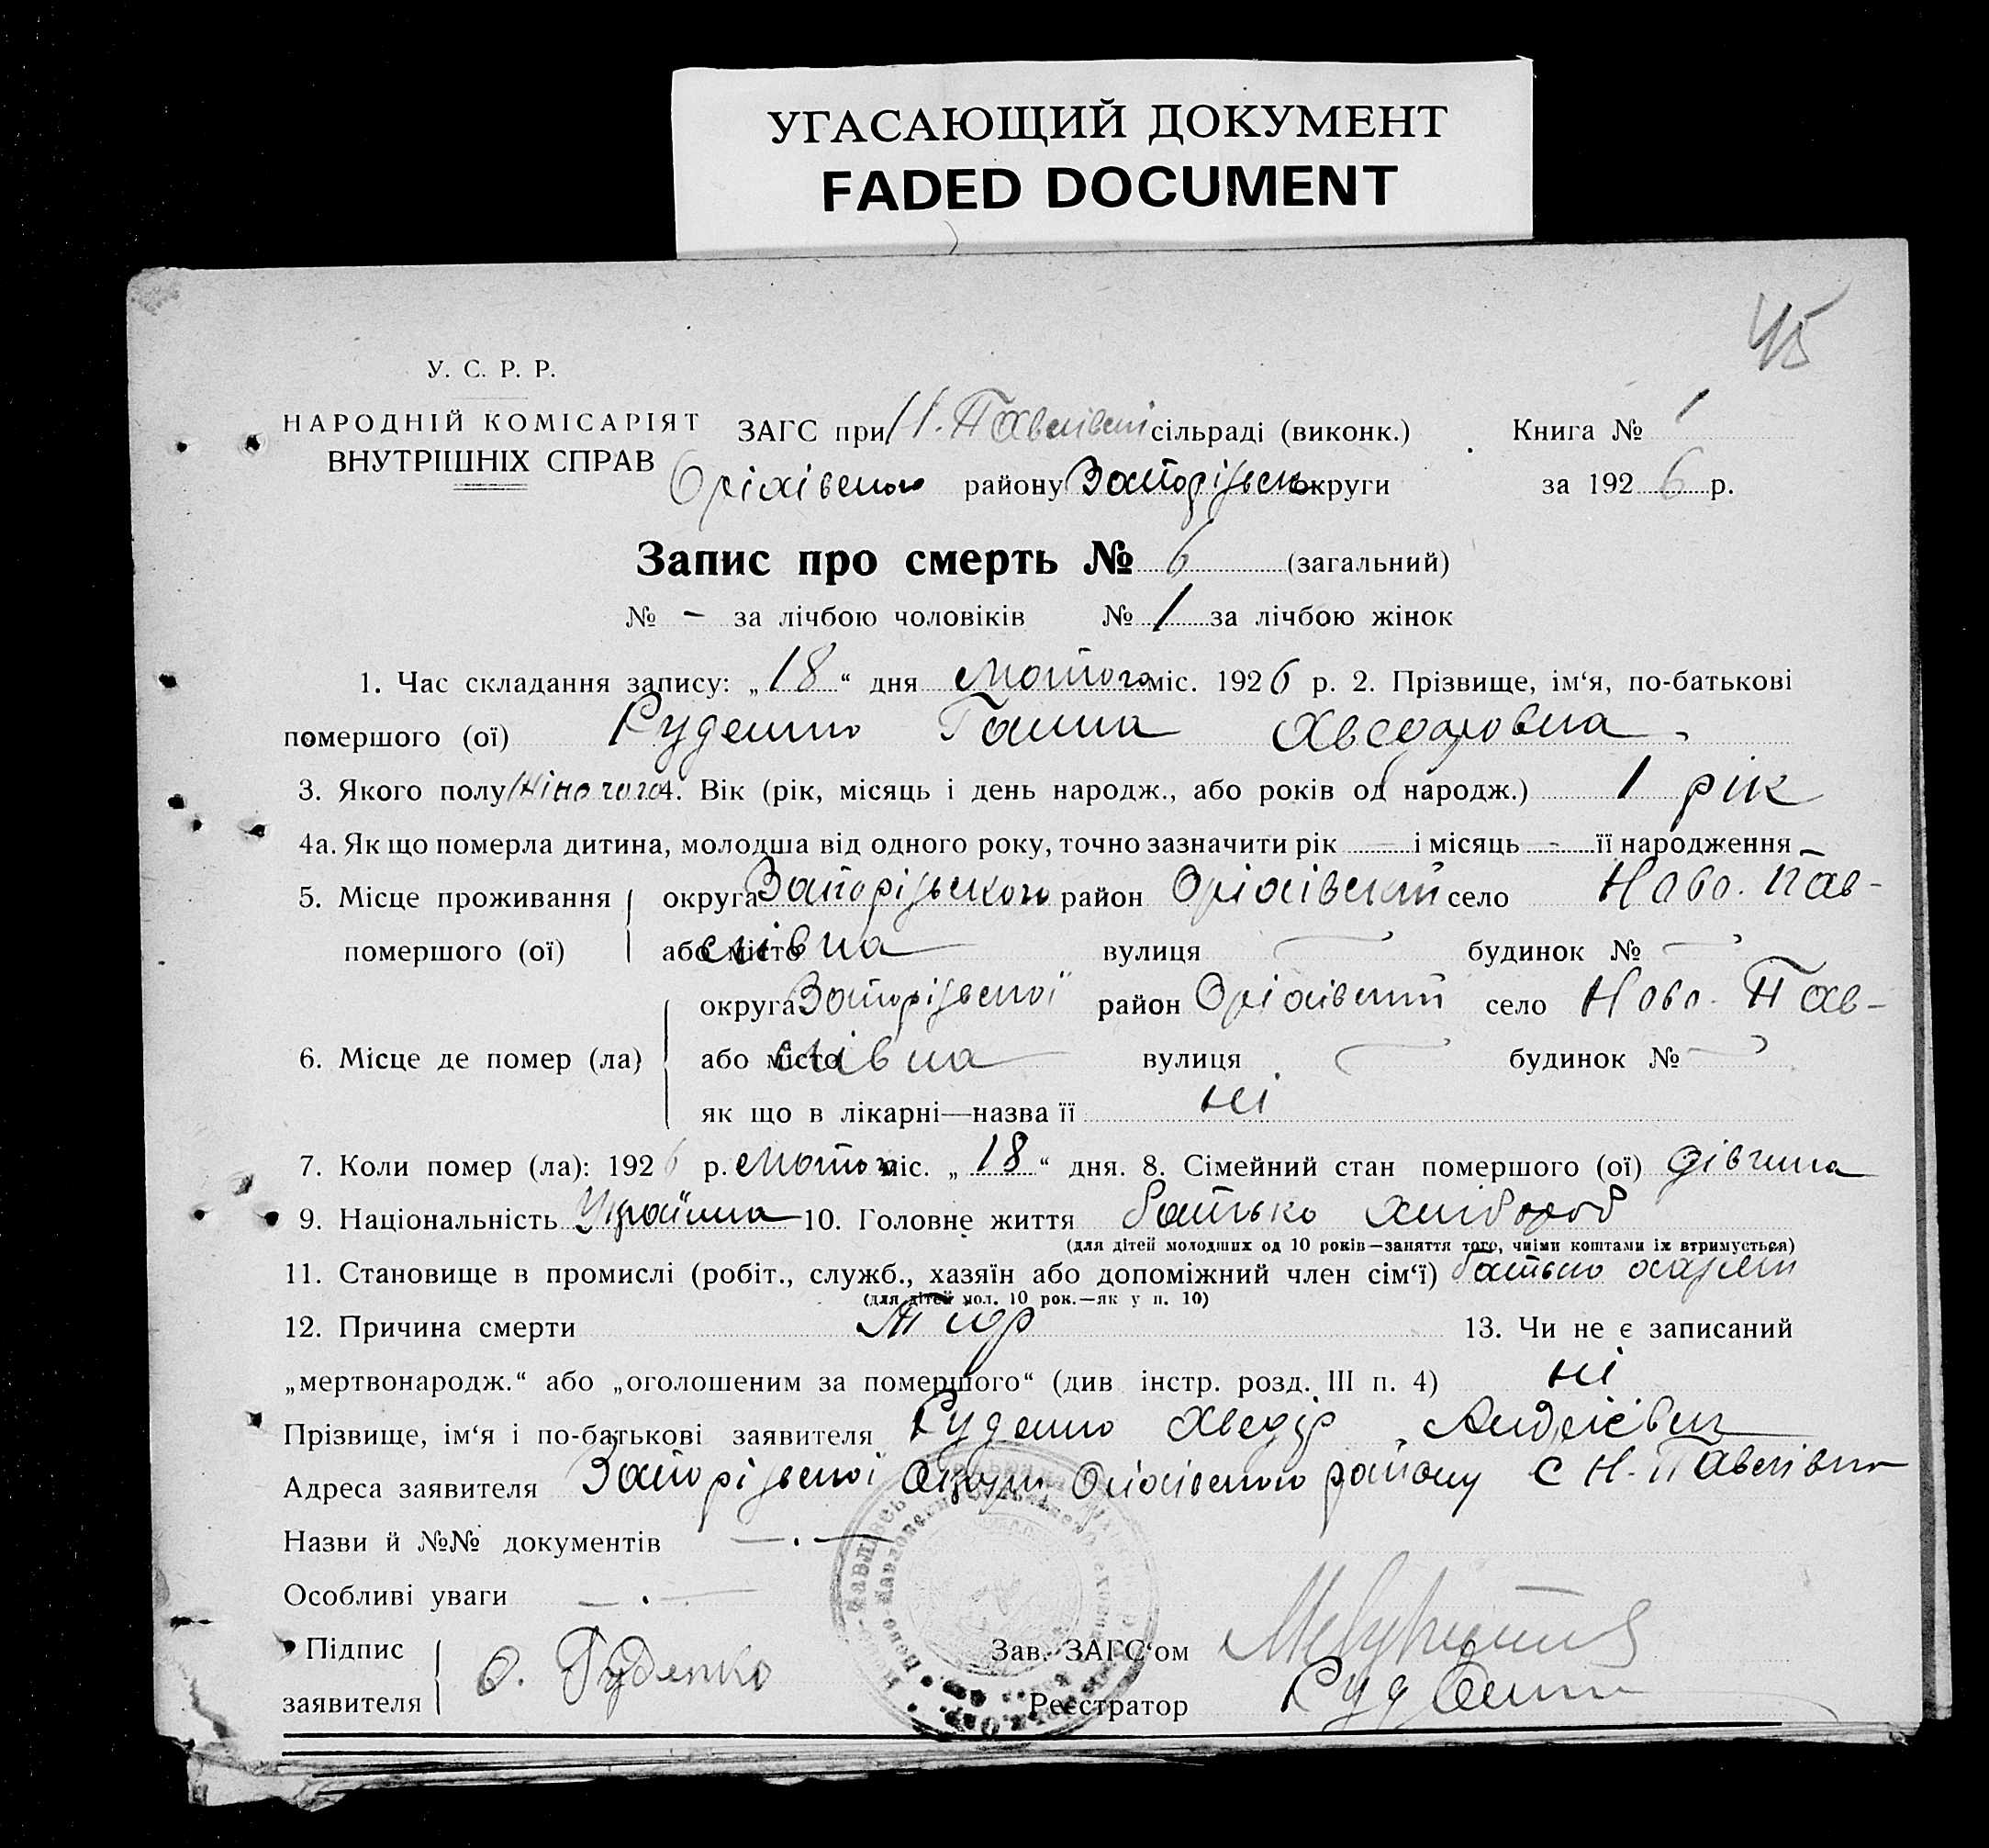 УГАСАЮЩИЙ ДОКУМЕНТ
FADED DOCUMENT
45
У. С. Р. Р.
НАРОДНІЙ КОМІСАРІЯТ
ВНУТРІШНІХ СПРАВ
ЗАГС при Н. Павлівській сільраді (виконк.) Книга № 1
Оріхівського району Запоріжськ округи за 1926 р.
Запис про смерть № 6 (загальний)
№ - за лічбою чоловіків № 1 за лічбою жінок
1. Час складання запису: „18“ дня лютого міс. 1926 р. 2. Прізвище, ім‘я, по-батькові
помершого (ої) Руденко Ганна Хведоровна
3. Якого полу жіночого 4. Вік (рік, місяць і день народж., або років од народж.) 1 рік
4а. Як що померла дитина, молодша від одного року, точно зазначити рік — і місяць - її народження —
5. Місце проживання округа Запоріжського район Оріхівский село Ново-Пав-
помершого (ої) або місто лівка вулиця — будинок № —
округа Запоріжської район Оріхівский село Ново-Пав-
6. Місце де помер (ла) або місто лівка вулиця — будинок № —
як що в лікарні—назва її ні
7. Коли помер (ла): 1926 р. лютого міс. „18“ дня. 8. Сімейний стан помершого (ої) дівчина
9. Національність Україїнка 10. Головне життя батько хлібороб
(для дітей молодших од 10 років—заняття того, чиїми коштами їх втримується)
11. Становище в промислі (робіт., служб., хазяїн або допоміжний член сім‘ї) батько
(для дітей мол. 10 рок.—як у п. 10)
12. Причина смерти 13. Чи не є записаний
„мертвонародж.“ або „оголошеним за помершого“ (див інстр. розд. III п. 4) ні
Прізвище, ім‘я і по-батькові заявителя Руденко Хведір Андрієвич
Адреса заявителя Запоріжської Округи Оріхівського району с Н-Павлівка
Назви й №№ документів —.—
Особливі уваги —.—
Підпис
заявителя Ф. Руденко
Зав. ЗАГС‘ом
Реєстратор Руденко